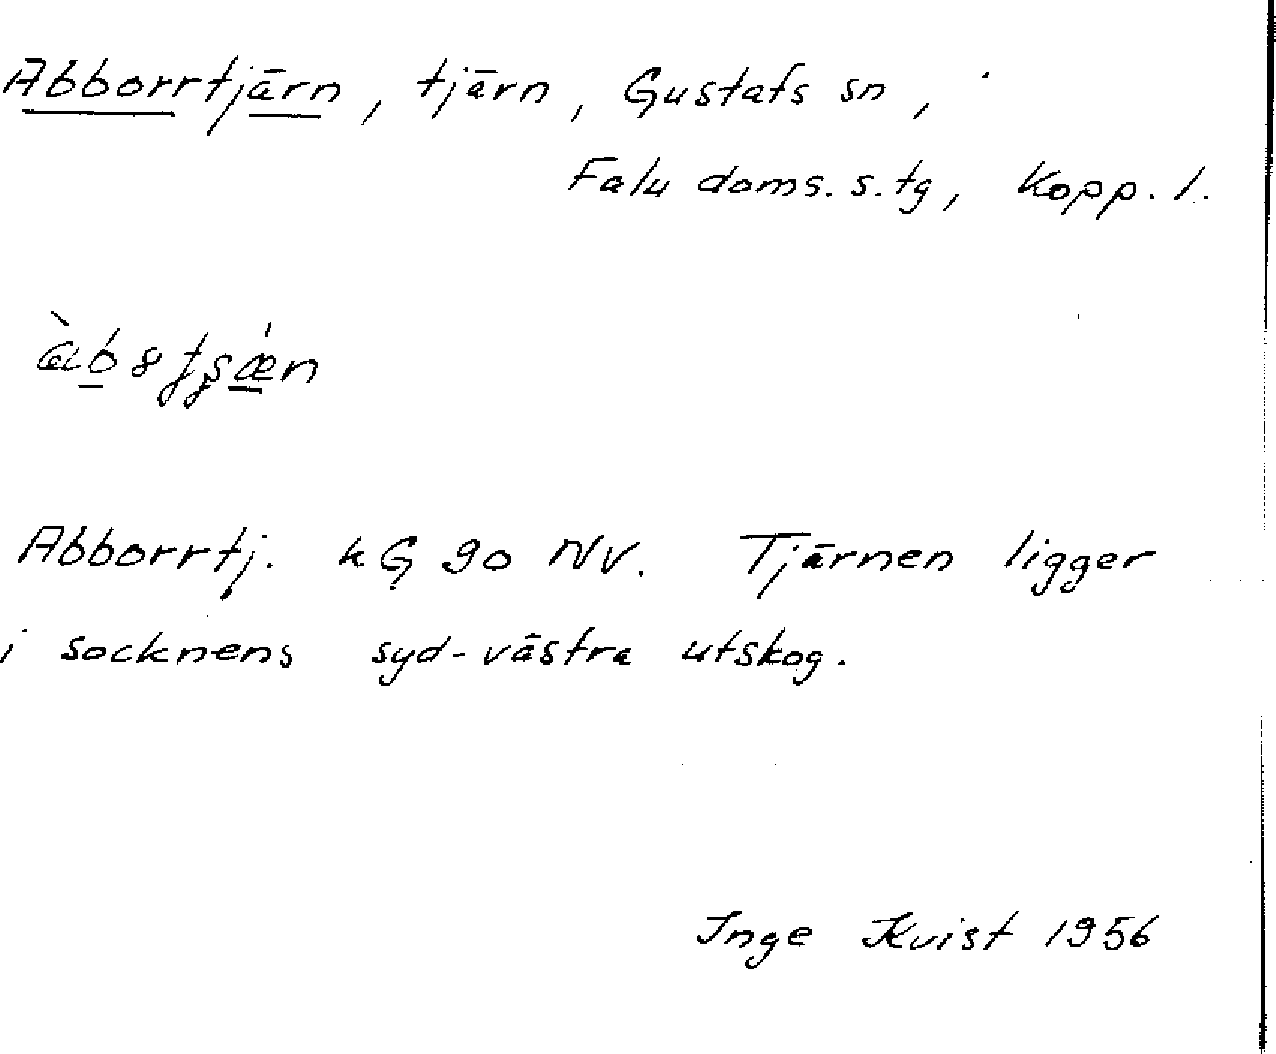 Abborrtjärn, tjärn, Gustafs sn,
Falu doms. s. tg, Kopp. l.
Abborrtj. kG 90 NV. Tjärnen ligger
i socknens syd-västra utskog.
Inge Kvist 1956